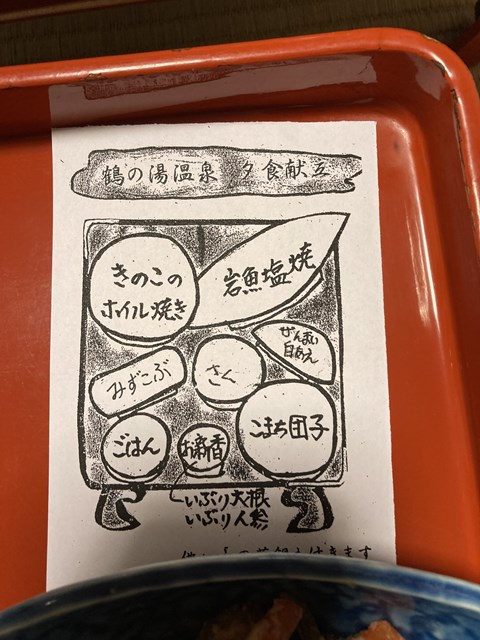 鶴の湯温泉 夕食献立
きのこの
ホイル焼き
岩魚塩焼
ぜんまい
白あえ
みずこぶ
さん
こまち団子
ごはん
お新香
いぶり大根
いぶり人参